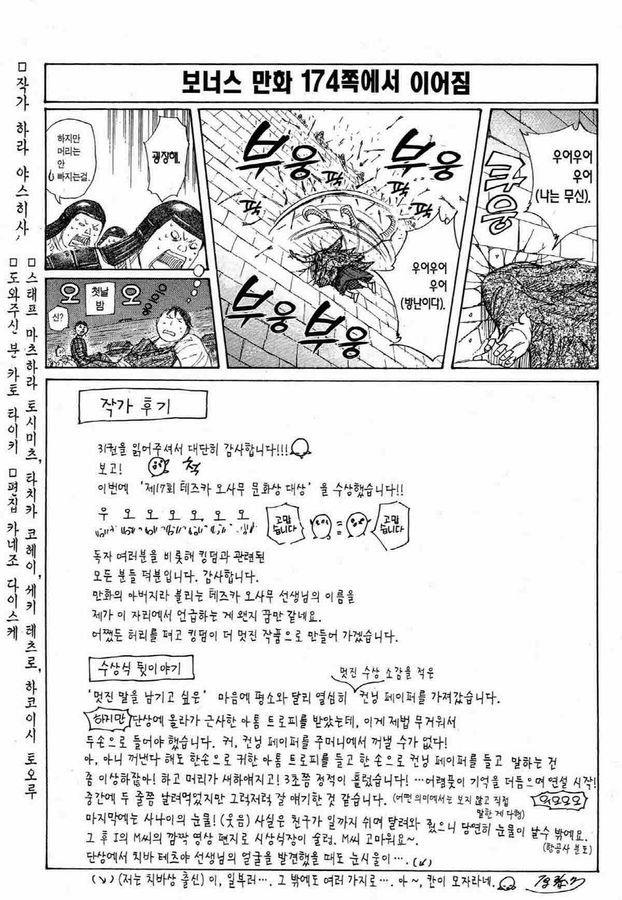 보너스 만화 174쪽에서 이어짐
우어우어
우어
(나는 무신).
쿠웅
부웅
부웅
퍽
퍽
우어우어
우어
(방난이다).
부웅
부웅
굉장해.
하지만
머리는
안
빠지는걸.
오
첫날
밤
오
신?
□작가 하라 야스히사,
□스태프 마츠하라 토시미츠, 타치카 코헤이, 세키 테츠로, 하코이시 토오루
□도와주신 분 카토 타이키 □편집 카네조 다이스케
작가 후기
31권을 읽어주셔서 대단히 감사합니다!!!
보고! 척
이번에 '제17회 테즈카 오사무 문화상 대상'을 수상했습니다!!
우 오 오 오 오 오 오
고맙
습니다
고맙
습니다
독자 여러분을 비롯해 킹덤과 관련된
모든 분들 덕분입니다. 감사합니다.
만화의 아버지라 불리는 테즈카 오사무 선생님의 이름을
제가 이 자리에서 언급하는 게 왠지 꿈만 같네요.
어쨌든 허리를 펴고 킹덤이 더 멋진 작품으로 만들어 가겠습니다.
수상식 뒷이야기
멋진 수상 소감을 적은
'멋진 말을 남기고 싶은' 마음에 평소와 달리 열심히 컨닝 페이퍼를 가져갔습니다.
하지만 단상에 올라가 근사한 아톰 트로피를 받았는데, 이게 제법 무거워서
두손으로 들어야 했습니다. 커, 컨닝 페이퍼를 주머니에서 꺼낼 수가 없다!
아, 아니 꺼낸다 해도 한손으로 귀한 아톰 트로피를 들고 한 손으로 컨닝 페이퍼를 들고 말하는 건
좀 이상하잖아! 하고 머리가 새하얘지고! 3초쯤 정적이 흘렀습니다! …어렴풋이 기억을 더듬으며 연설 시작!
중간에 두 줄쯤 날려먹었지만 그럭저럭 잘 얘기한 것 같습니다. (어떤 의미에서는 보지 않고 직접
말한 게 다행)
마지막에는 사나이의 눈물! (웃음) 사실은 친구가 일까지 쉬며 달려와 줬으니 당연히 눈물이 날 수 밖에요.
(항공사 분도)
그 후 I의 M씨의 깜짝 영상 편지로 시상식장이 술렁. M씨 고마워요~.
단상에서 치바 테츠야 선생님의 얼굴을 발견했을 때도 눈시울이…. (↙)
(↘) (저는 치바상 출신) 이, 일부러…. 그 밖에도 여러 가지로…. 아~, 칸이 모자라네.